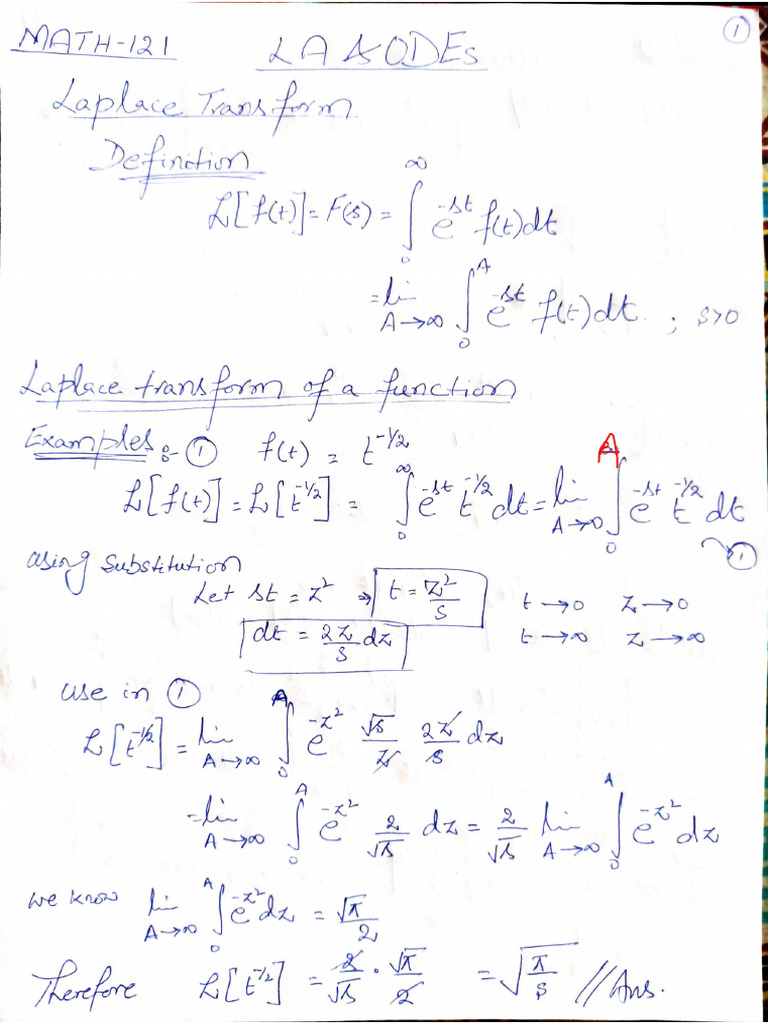 ①
MATH-121 LA & ODEs
Laplace Transform
Definition
ℒ[f(t)] = F(s) = ∫₀^∞ e^{-st} f(t)dt
= lim_{A→∞} ∫₀^A e^{-st} f(t)dt. ; s>0
Laplace transform of a function
Examples:- ① f(t) = t^{-1/2}
ℒ[f(t)] = ℒ[t^{-1/2}] = ∫₀^∞ e^{-st} t^{-1/2} dt = lim_{A→∞} ∫₀^A e^{-st} t^{-1/2} dt
→①
using substitution
Let st = z² ⇒ t = z²/s t→0 z→0
dt = 2z/s dz t→∞ z→∞
use in ①
ℒ[t^{-1/2}] = lim_{A→∞} ∫₀^A e^{-z²} √s/z 2z/s dz
= lim_{A→∞} ∫₀^A e^{-z²} 2/√s dz = 2/√s lim_{A→∞} ∫₀^A e^{-z²} dz
we know lim_{A→∞} ∫₀^A e^{-z²} dz = √π/2
Therefore ℒ[t^{-1/2}] = 2/√s · √π/2 = √(π/s) //Ans.